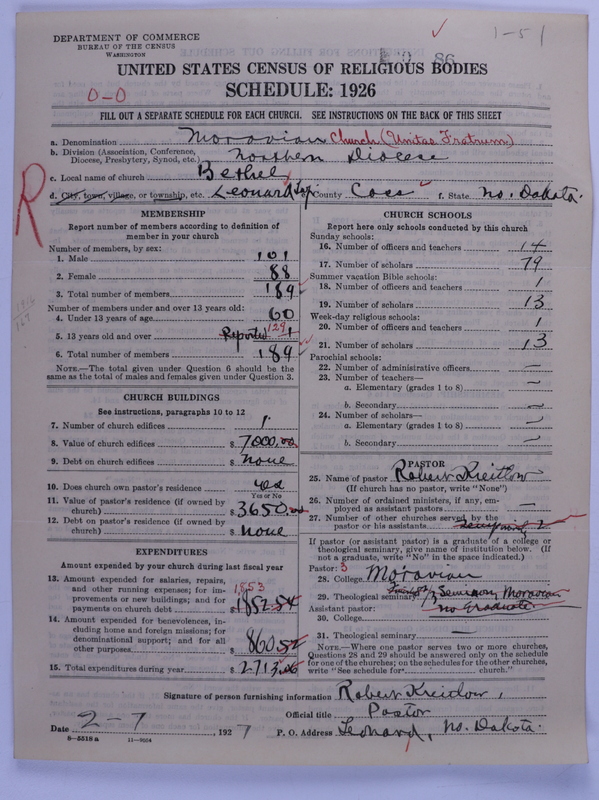 DEPARTMENT OF COMMERCE
BUREAU OF THE CENSUS
WASHINGTON
1-51
86
UNITED STATES CENSUS OF RELIGIOUS BODIES
SCHEDULE: 1926
0-0
FILL OUT A SEPARATE SCHEDULE FOR EACH CHURCH. SEE INSTRUCTIONS ON THE BACK OF THIS SHEET
a. Denomination Moravian Church (Unitas Fratrum)
b. Division (Association, Conference, Diocese, Presbytery, Synod, etc.) Northern Diocese
c. Local name of church Bethel
d. City, town, village, or township, etc. Leonard Twp. e. County Cass f. State No. Dakota.
R
MEMBERSHIP
Report number of members according to definition of
member in your church
Number of members, by sex:
1. Male 101
2. Female 88
3. Total number of members 189
Number of members under and over 13 years old:
4. Under 13 years of age 60
5. 13 years old and over Reported 129
6. Total number of members 189
NOTE.—The total given under Question 6 should be the
same as the total of males and females given under Question 3.
CHURCH BUILDINGS
See instructions, paragraphs 10 to 12
7. Number of church edifices 1
8. Value of church edifices $ 7000.00
9. Debt on church edifices $ none
10. Does church own pastor's residence yes
Yes or No
11. Value of pastor's residence (if owned by
church) $ 3650.00
12. Debt on pastor's residence (if owned by
church) $ none
EXPENDITURES
Amount expended by your church during last fiscal year
13. Amount expended for salaries, repairs,
and other running expenses; for im-
provements or new buildings; and for
payments on church debt $ 1852.54
1853
14. Amount expended for benevolences, in-
cluding home and foreign missions; for
denominational support; and for all
other purposes $ 860.52
15. Total expenditures during year $ 2713.06
CHURCH SCHOOLS
Report here only schools conducted by this church
Sunday schools:
16. Number of officers and teachers 14
17. Number of scholars 79
Summer vacation Bible schools:
18. Number of officers and teachers 1
19. Number of scholars 13
Week-day religious schools:
20. Number of officers and teachers 1
21. Number of scholars 13
Parochial schools:
22. Number of administrative officers —
23. Number of teachers—
a. Elementary (grades 1 to 8) —
b. Secondary —
24. Number of scholars—
a. Elementary (grades 1 to 8) —
b. Secondary —
PASTOR
25. Name of pastor Robert Kreitlow
(If church has no pastor, write "None")
26. Number of ordained ministers, if any, em-
ployed as assistant pastors —
27. Number of other churches served by the
pastor or his assistants 2
If pastor (or assistant pastor) is a graduate of a college or
theological seminary, give name of institution below. (If
not a graduate, write "No" in the space indicated.)
Pastor: 3
28. College Moravian
29. Theological seminary Seminary Moravian
no Graduate
Assistant pastor:
30. College
31. Theological seminary —
NOTE.—Where one pastor serves two or more churches,
Questions 28 and 29 should be answered only on the schedule
for one of the churches; on the schedules for the other churches,
write "See schedule for church."
Signature of person furnishing information Robert Kreitlow,
Official title Pastor
Date 2-7, 1927 P. O. Address Leonard, No. Dakota.
8-5518 a 11-9034